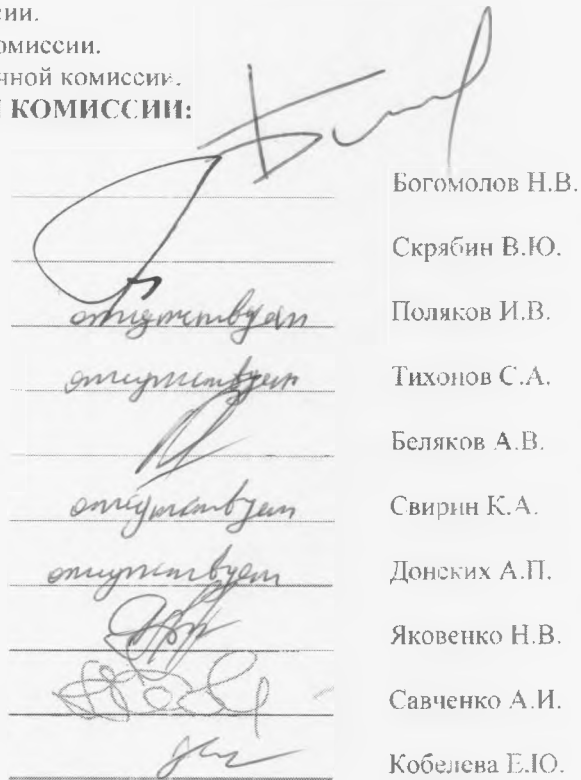 сии.
омиссии.
чной комиссии.
КОМИССИИ:
Богомолов Н.В.
Скрябин В.Ю.
отсутствует Поляков И.В.
отсутствует Тихонов С.А.
Беляков А.В.
отсутствует Свирин К.А.
отсутствует Донских А.П.
Яковенко Н.В.
Савченко А.И.
Кобелева Е.Ю.